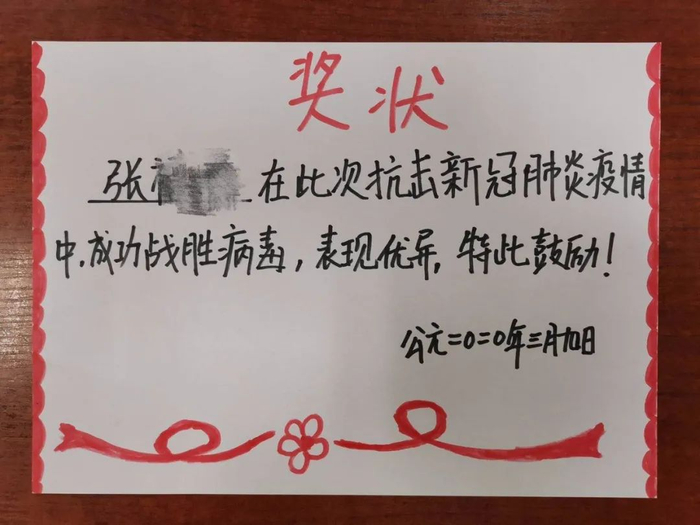 奖状
张 在此次抗击新冠肺炎疫情
中,成功战胜病毒,表现优异,特此鼓励!
公元二0二0年三月九日